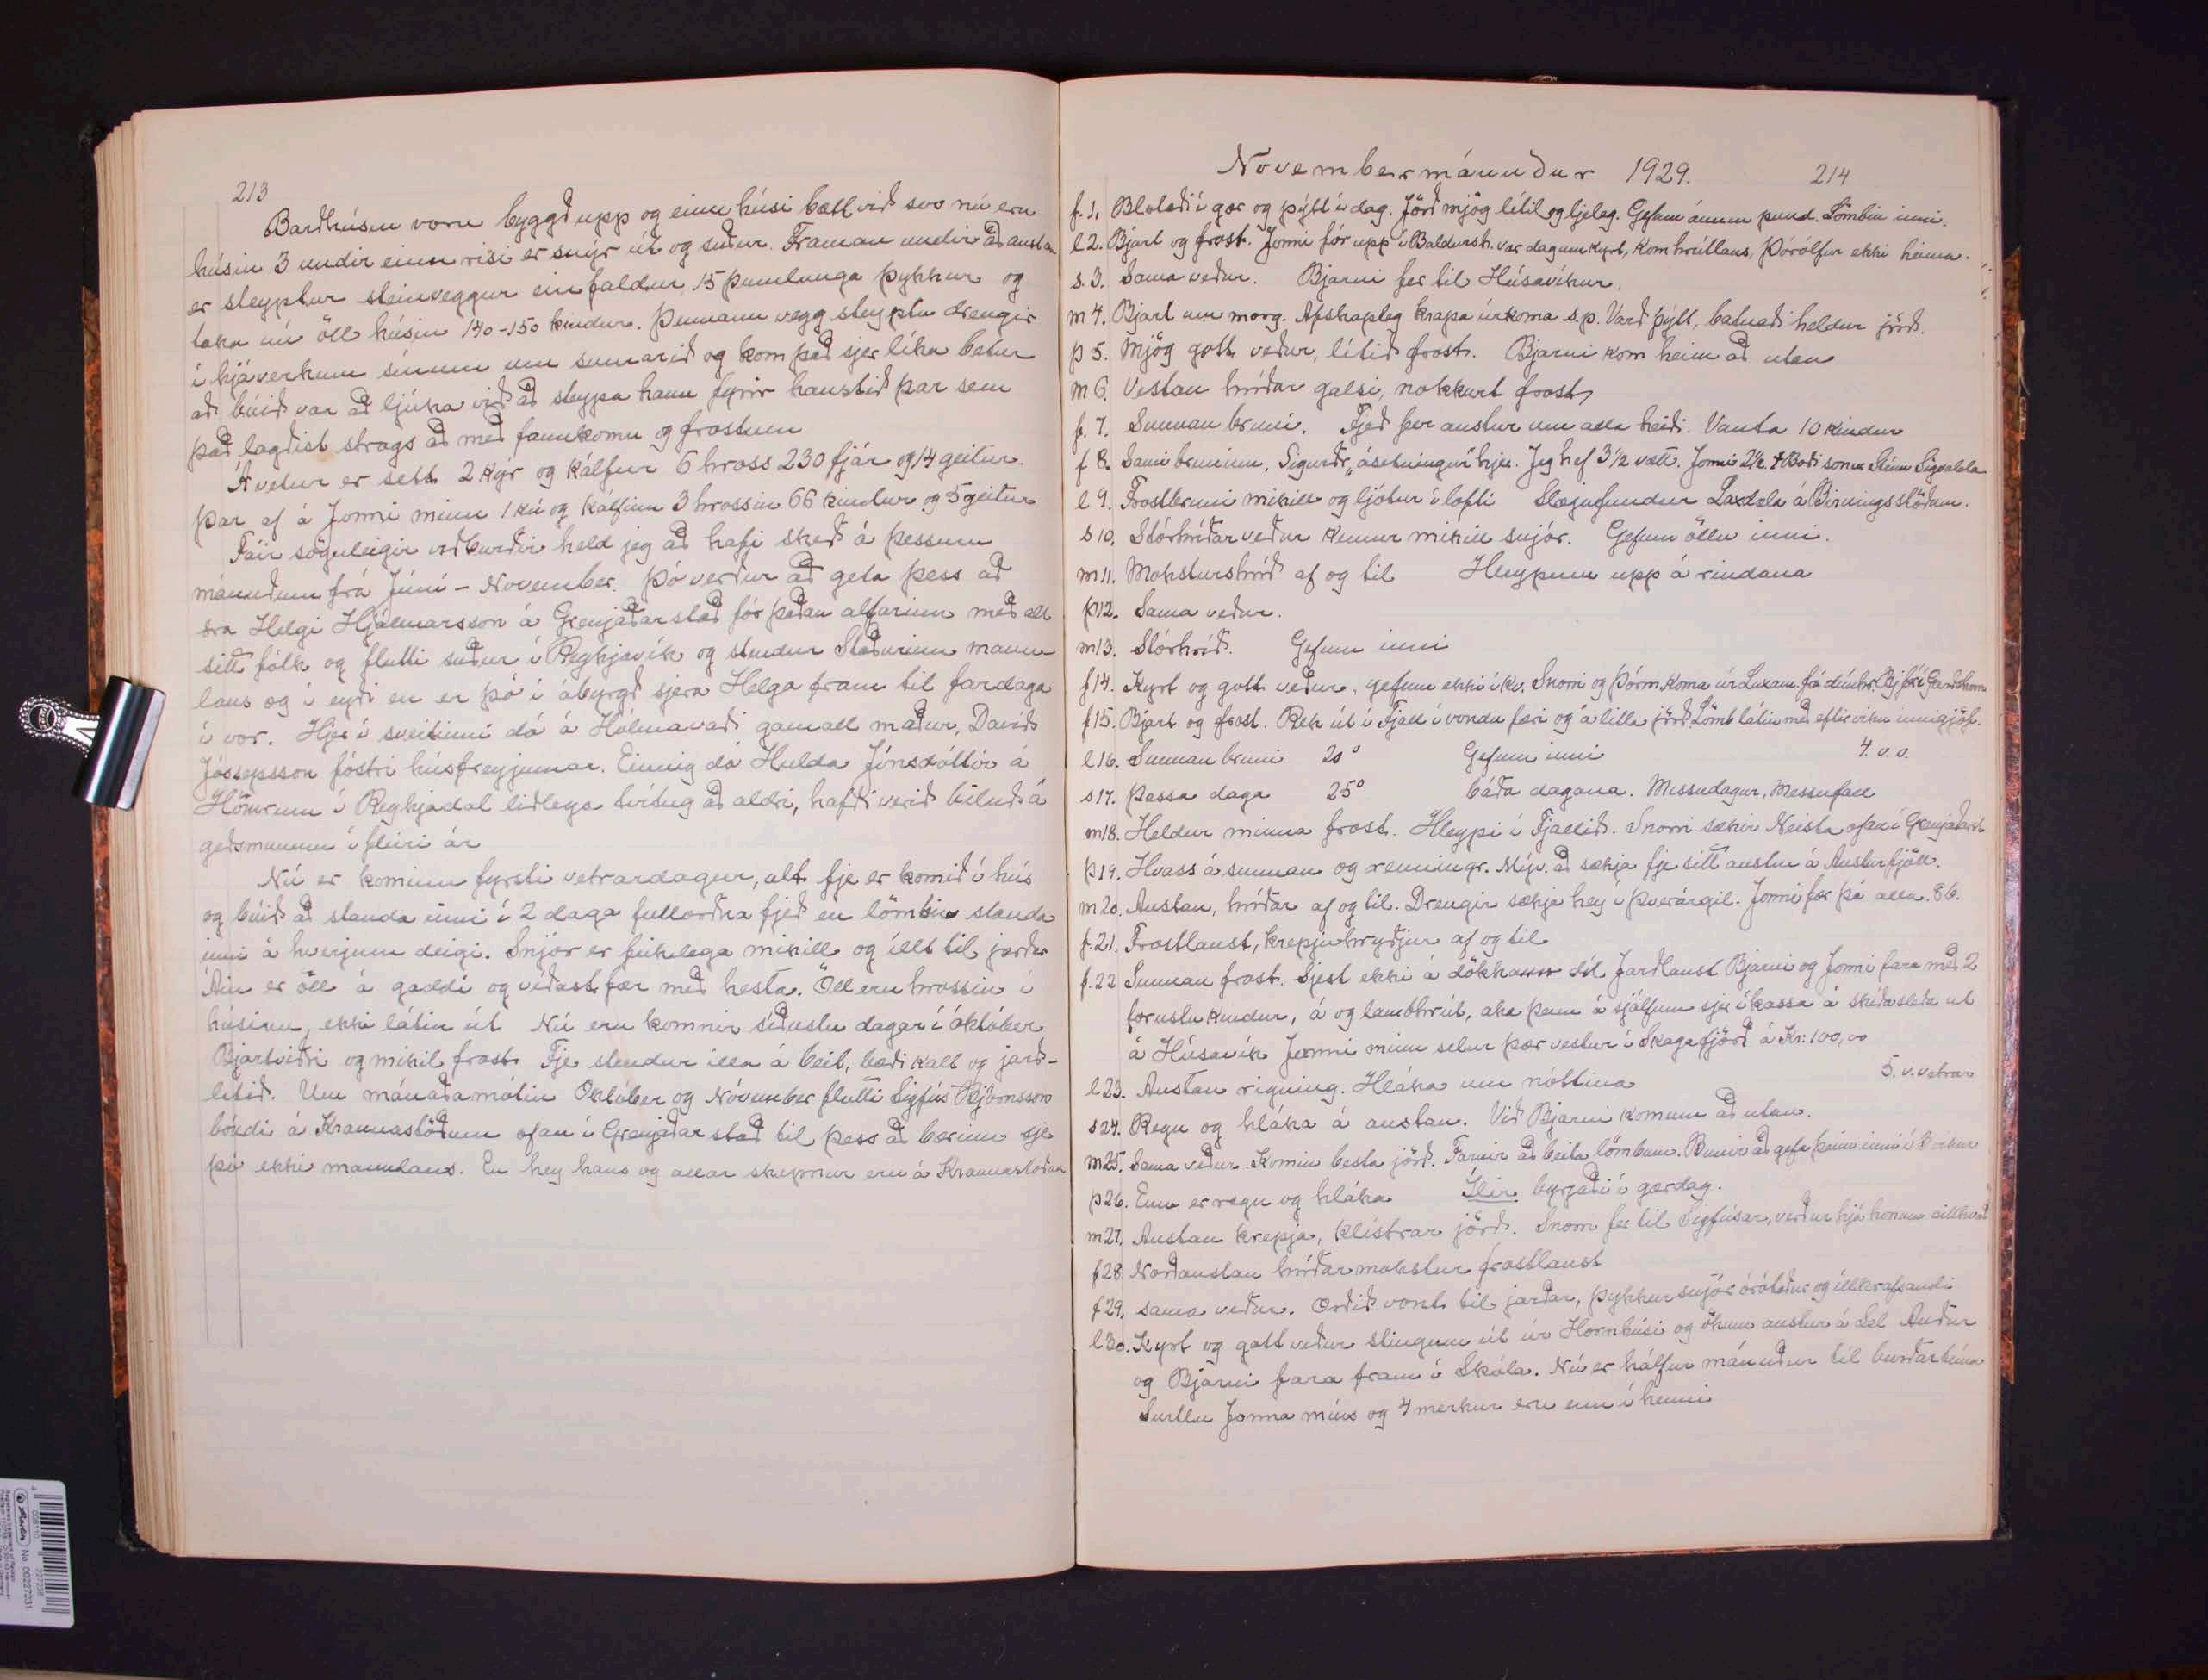 213
Barðhúsin voru byggð upp og einu húsi bætt við svo nú eru
húsin 3 undir einu risi er snýr út og suður. Framan undir að austan
er steyptur steinveggur einfaldur 15 þumlunga þykkur og
taka nú öll húsin 140-150 kindur. Þennann vegg steyptu drengir
í hjáverkum sínum um sumarið og kom það sjer líka betur
að búið var að ljúka við að steypa hann fyrir haustið þar sem
það lagðist strags að með fannkomu og frostum
Á vetur er sett 2 kýr og kálfur 6 hross 230 fjár og 14 geitur.
Þar af á Jonni minn 1 kú og kálfinn 3 hrossin 66 kindur og 5 geitur
Fáir söguleigir viðburðir held jeg að hafi skeð á þessum
mánuðum frá Júní - November. Þó verður að geta þess að
sra Helgi Hjálmarsson á Grenjaðarstað fór þaðan alfarinn með alt
sitt fólk og flutti suður í Reykjavík og stendur Staðurinn mann
laus og í eyði en er þó í ábyrgð sjera Helga fram til fardaga
í vor. Hjer í sveitinni dó á Hólmavaði gamall maður, Davíð
Jósepsson fóstri húsfreyjunnar. Einnig dó Hulda Jónsdóttir á
Hömrum í Reykjadal liðlega tvítug að aldri, hafði verið biluð á
geðsmunum í fleiri ár
Nú er kominn fyrsti vetrardagur, alt fje er komið í hús
og búið að standa inni í 2 daga fullorðna fjeð en lömbin standa
inni á hverjum deigi. Snjór er feiklega mikill og illt til jarðar
Áin er öll á gaddi og víðast fær með hesta. Öll eru hrossin í
húsinu, ekki látin út Nú eru komnir síðustu dagar í október
Bjartviðri og mikil frost. Fje stendur illa á beit, bæði kalt og jarð-
lítið. Um mánaðamótin Október og Nóvember flutti Sigfús Björnsson
bóndi á Kraunastöðum ofan í Grenjaðarstað til þess að bærinn sje
þó ekki mannlaus. En hey hans og allar skepnur eru á Kraunastöðum
Novembermánuður 1929. 214
f. 1. Blotaði í gær og þýtt í dag. Jörð mjög lítil og ljeleg. Gefum ánum pund. Lömbin inni.
l 2. Bjart og frost. Jonni fór upp í Baldursh. var dagum kyrt, kom hrútlaus, Þórólfur ekki heima.
s. 3. Sama veður. Bjarni fer til Húsavíkur.
m 4. Bjart um morg. Afskapleg krapa úrkoma s.p. Varð þýtt, batnaði heldur jörð.
þ 5. Mjög gott veður, lítið frost. Bjarni kom heim að utan
m 6. Vestan hríðar galsi, nokkurt frost
f. 7. Sunnan bruni. Fjeð fer austur um alla heiði. Vanta 10 kindur
f 8. Sami bruninn. Sigurðr „ásetningur" hjer. Jeg hef 3 1/2 vætt. Jonni 2 1/2.
l 9. Frostbruni mikill og ljótur í lofti Slægjufundur Laxdæla á Birningsstöðum.
s 10. Stórhríðar veður kemur mikill snjór. Gefum öllu inni.
m 11. Moksturshríð af og til Hleypum upp á rindana
þ 12. Sama veður.
m 13. Stórhríð. Gefum inni
f 14. Kyrt og gott veður, gefum ekki í kv. Snorri og Þórm. koma úr Laxam.
f 15. Bjart og frost. Rek út í Fjall í vondu færi og á litla jörð. Lömb látin með eftir viku innigjöf.
l 16. Sunnan bruni 20° Gefum inni 4. v. v.
s 17. Þessa daga 25° báða dagana. Messudagur, Messufall
m 18. Heldur minna frost. Hleypi í Fjallið. Snorri sækir Neista ofan í Grenjaðarst
þ 19. Hvass á sunnan og renningr. Mýv. að sækja fje sitt austur á Austurfjöll.
m 20. Austan, hríðar af og til. Drengir sækja hey í Þverárgil. Jonni fær þá alla. 86.
f. 21. Frostlaust, krepjuhryðjur af og til
f. 22 Sunnan frost. Sjest ekki á dökkann díl Jarðlaust Bjarni og Jonni fara með 2
forustu kindur, á og lambhrút, aka þeim á sjálfum sjer í kassa á skíðasleða út
á Húsavík Jonni minn selur þær vestur í Skagafjörð á Kr. 100,00
l 23. Austan rigning. Hláka um nóttina 5. v. vetrar
s 24. Regn og hláka á austan. Við Bjarni komum að utan.
m 25. Sama veður. Komin besta jörð. Farnir að beita lömbum. Bunir að gefa þeim inni í 3 vikur
þ 26. Enn er regn og hláka Ílir byrjaði í gærdag.
m 27. Austan krepja, klístrar jörð. Snorri fer til Sigfúsar, verður hjá honum eitthvað
f 28 Norðaustan hríðarmokstur frostlaust
f 29. sama veður. Orðið vont til jarðar, þykkur snjór og illkrafsandi
l 30. Kyrt og gott veður stingum út úr Hornhúsi og ökum austur á Sel Auður
og Bjarni fara fram í Skóla. Nú er hálfur mánuður til burðartíma
Surtlu Jonna míns og 4 merkur eru enn í henni